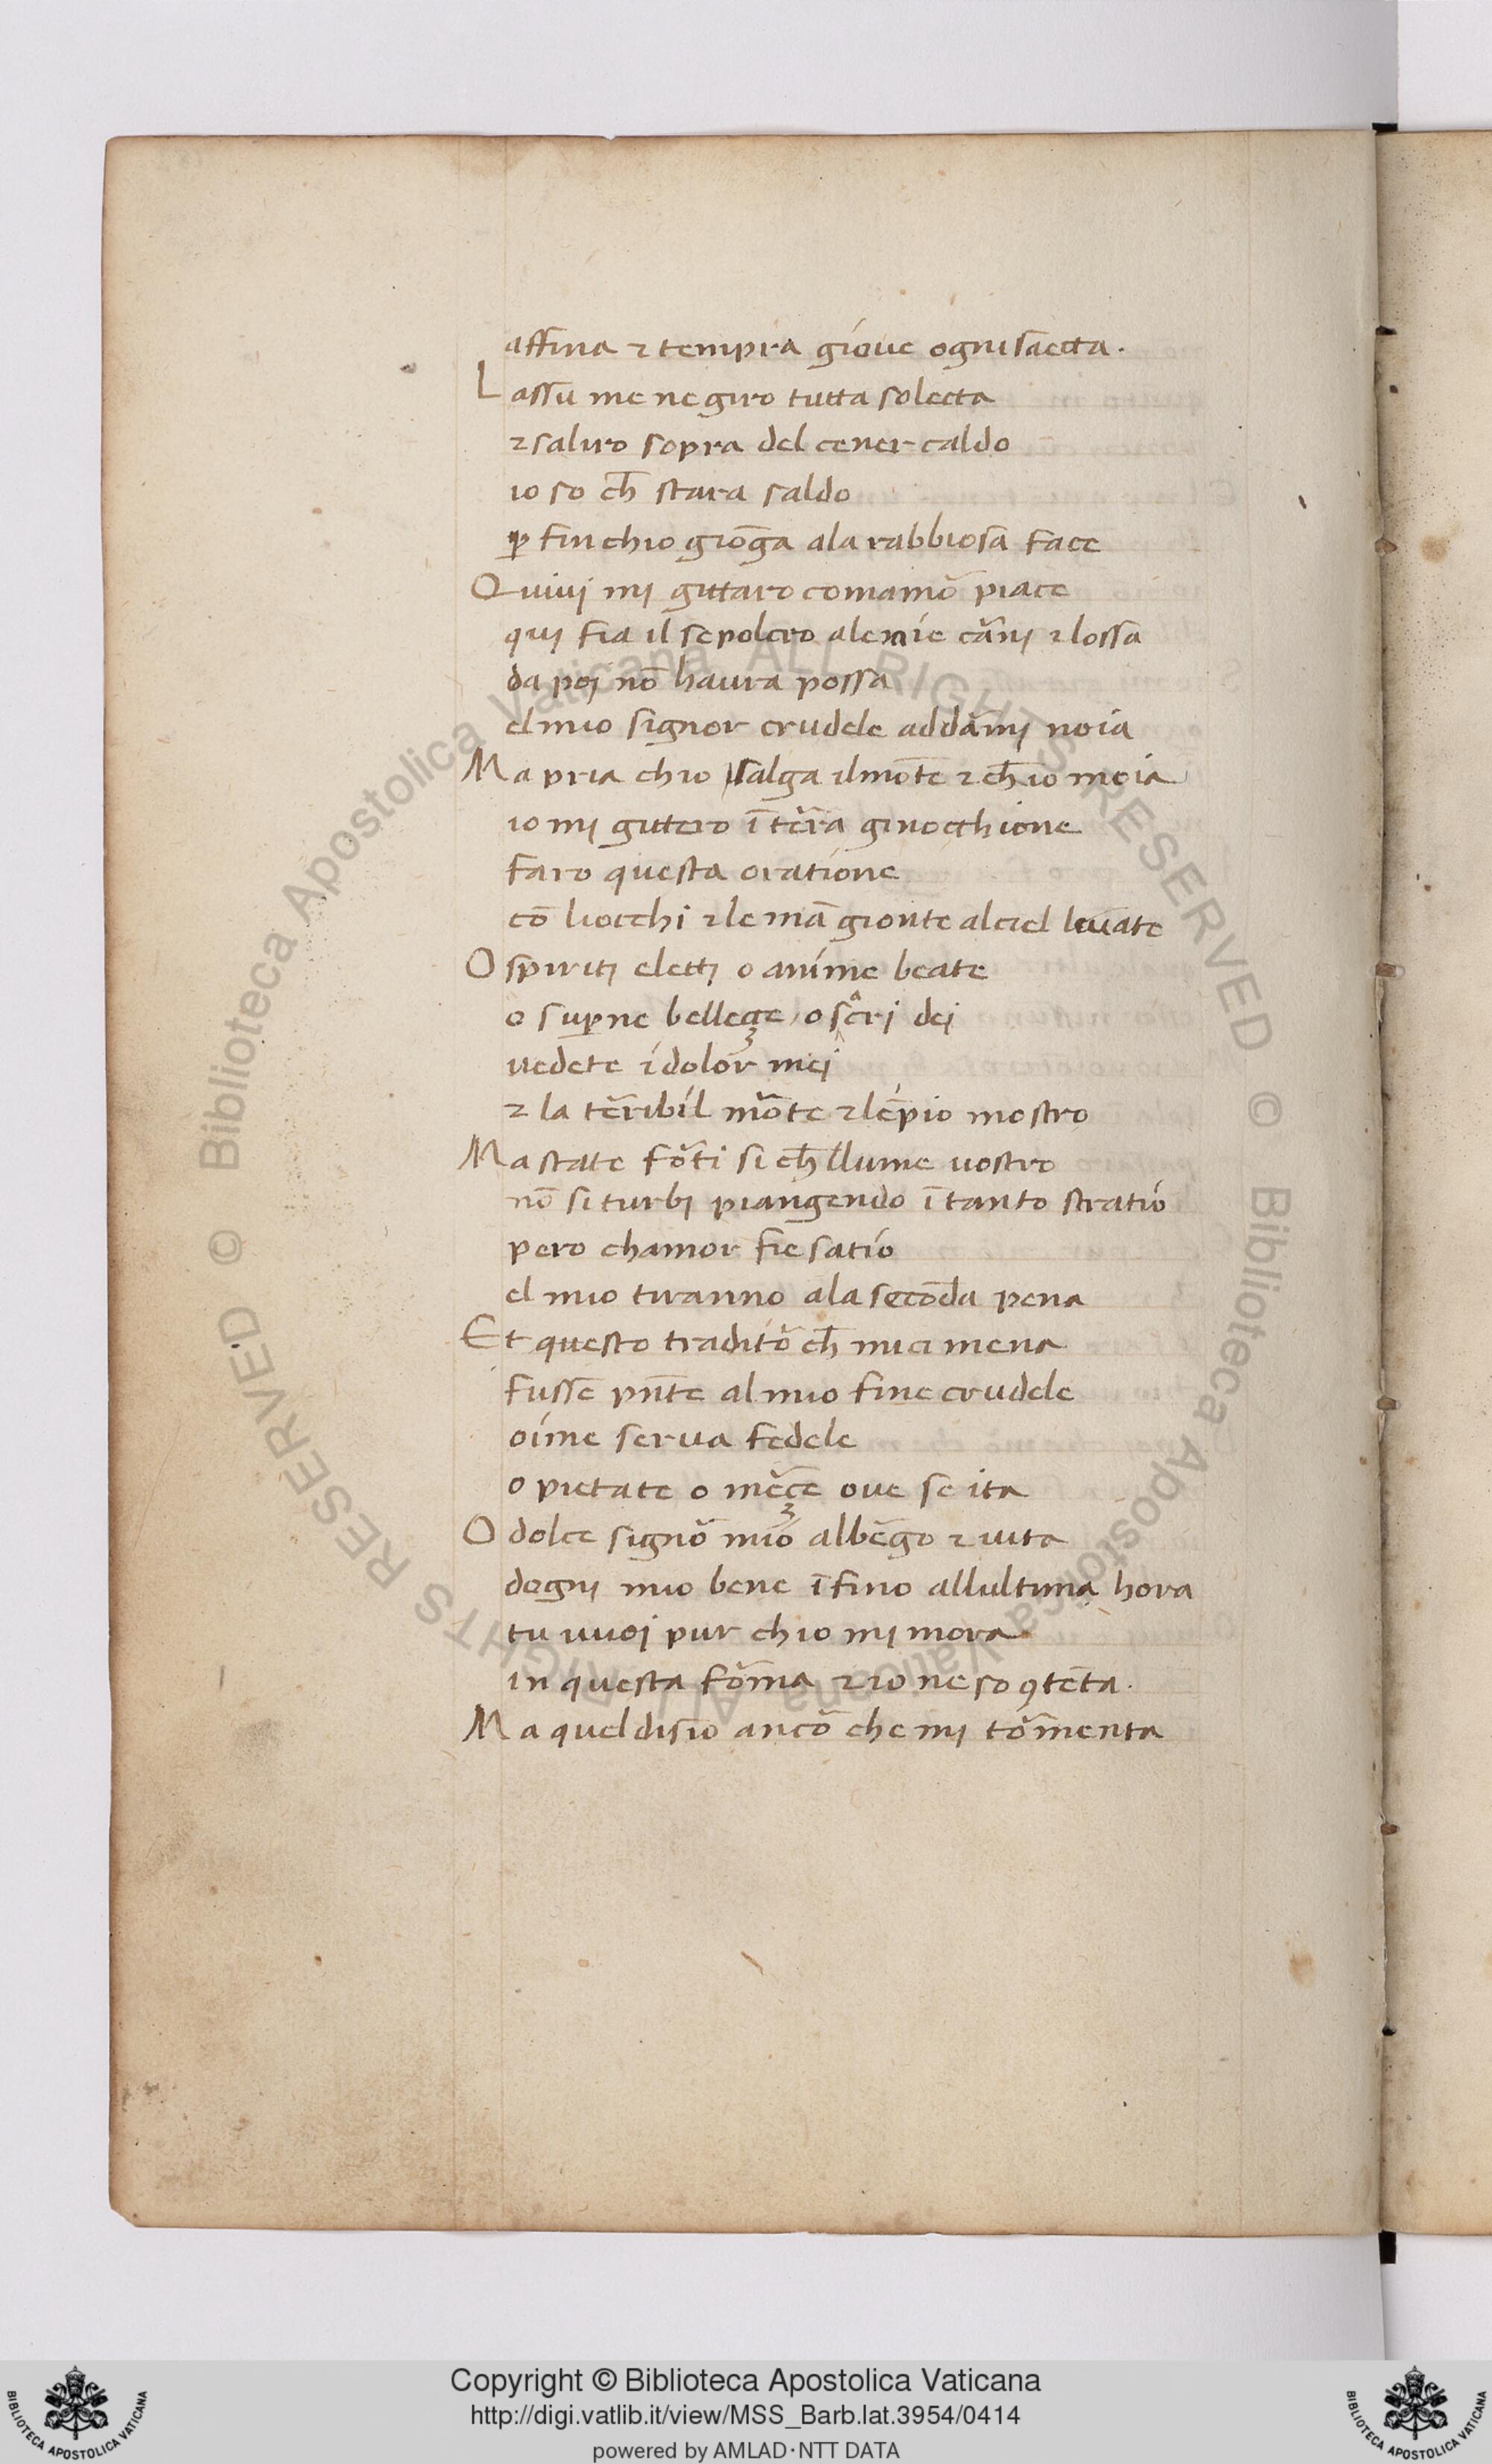 affina ⁊ tempra gioue ogni saecta.
Lassu me ne giro tutta solecta
⁊ saliro sopra del cener caldo
io so ch̄ stara saldo
ꝑ fin chio giōga ala rabbiosa face
Quiui mi gittaro comamō piace
qui fia il sepolcro ale mie cāni ⁊ lossa
da poi nō haura possa
el mio signor crudele addāmi noia
Ma pria chio salga il mōte ⁊ ch̄ io moia
io mi gittero ī tēra ginocchione
faro questa oratione
cō liocchi ⁊ le mā gionte al ciel leuate
O spiriti eletti o anime beate
o suꝑne belleçe o sacri dei
uedete i dolor mei
⁊ la tēribil mōte ⁊ lēpio mostro
Ma state fōti si ch̄ llume uostro
nō si turbi piangendo ī tanto stratio
pero chamor fie satio
el mio tiranno ala secōda pena
Et questo traditō ch̄ mici mena
fusse pn̄te al mio fine crudele
oime serua fedele
o pietate o mēçe oue se ita
O dolce signō mio albēgo ⁊ uita
dogni mio bene īfino allultima hora
tu uuoi pur chio mi mora
in questa fōma ⁊ io ne so ꝯtēta.
Ma quel disio ancō che mi tōmenta
Copyright © Biblioteca Apostolica Vaticana
http://digi.vatlib.it/view/MSS_Barb.lat.3954/0414
powered by AMLAD·NTT DATA